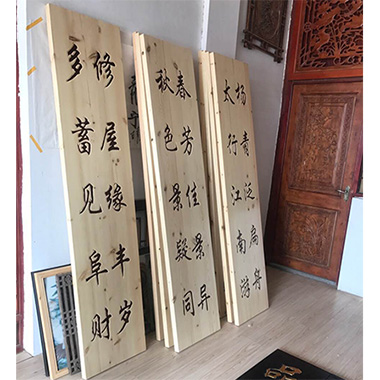 杨青泛扁舟
太行江南游
春芳佳景异
秋色景段同
修屋缘丰岁
多蓄见阜财